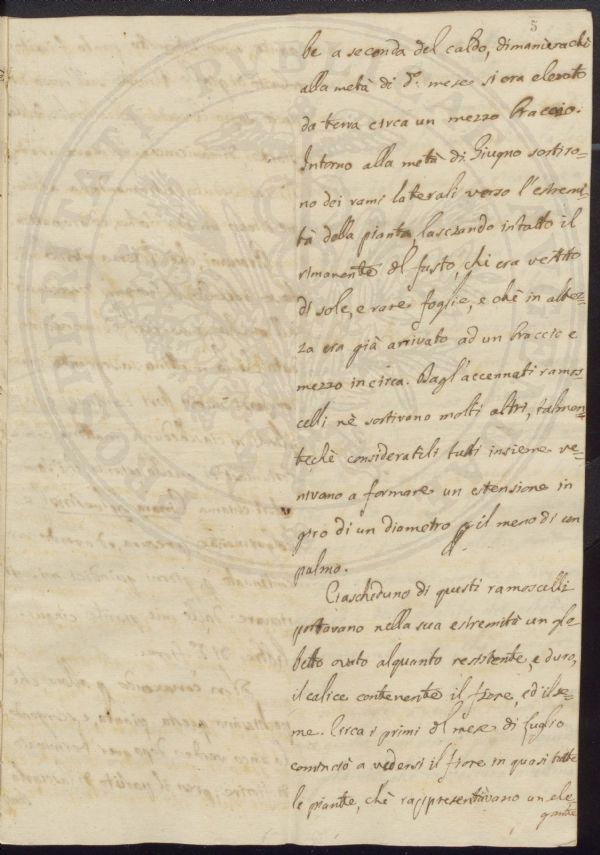 5
be a seconda del caldo, dimanierachè
alla metà di d.º mese si era elevato
da terra circa un mezzo braccio.
Intorno alla metà di Giugno sortiro-
no dei rami laterali verso l'estremi-
tà della pianta, lasciando intatto il
rimanente del fusto, chè era vestito
di sole, e rare foglie, e chè in altez-
za era già arrivato ad un braccio e
mezzo incirca. Dagl'accennati ramos-
celli nè sortivano molti altri, talmen-
techè consideratili tutti insieme ve-
nivano a formare un estensione in
giro di un diametro p il meno di un
palmo.
Ciascheduno di questi ramoscelli
portavano nella sua estremità un glo-
betto ovato alquanto resistente, e duro,
il calice contenente il fiore, ed il se-
me. Circa i primi del mese di Luglio
cominciò a vedersi il fiore in quasi tutte
le piante, chè rappresentavano un ele-
gante